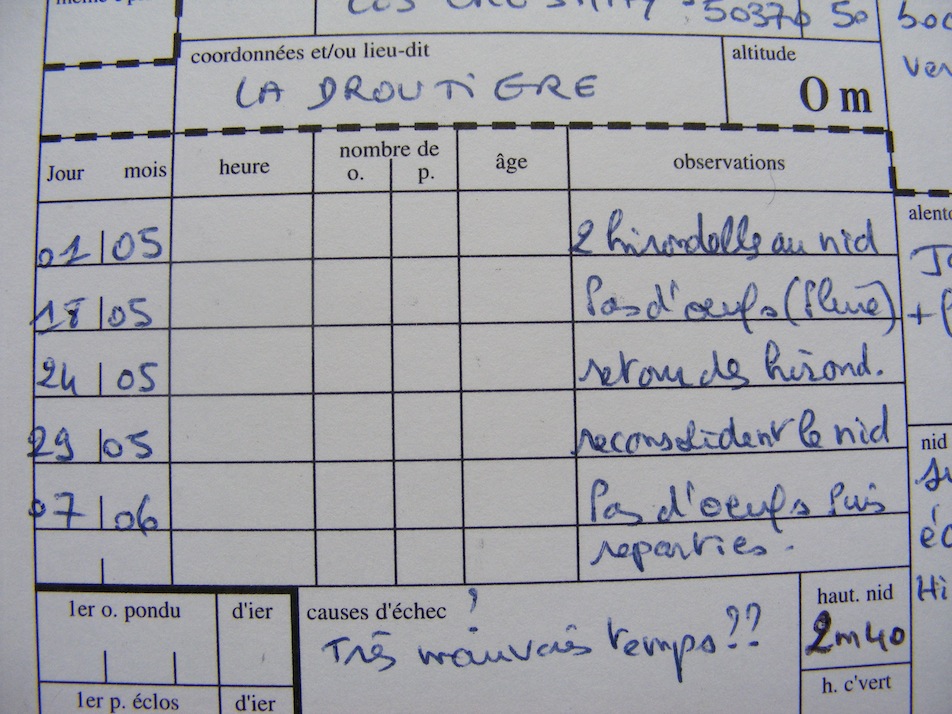 50370 50
coordonnées et/ou lieu-dit
altitude
LA DROUTIERE
0 m
Jour mois
heure
nombre de
o. p.
âge
observations
01 05 2 hirondelles au nid
18 05 Pas d'oeufs (Pluie)
24 05 retour des hirond.
29 05 reconsolident le nid
07 06 Pas d'oeufs Puis
reparties.
1er o. pondu
d'ier
causes d'échec ?
Très mauvais temps??
haut. nid
2m40
h. c'vert
1er p. éclos
d'ier
nid